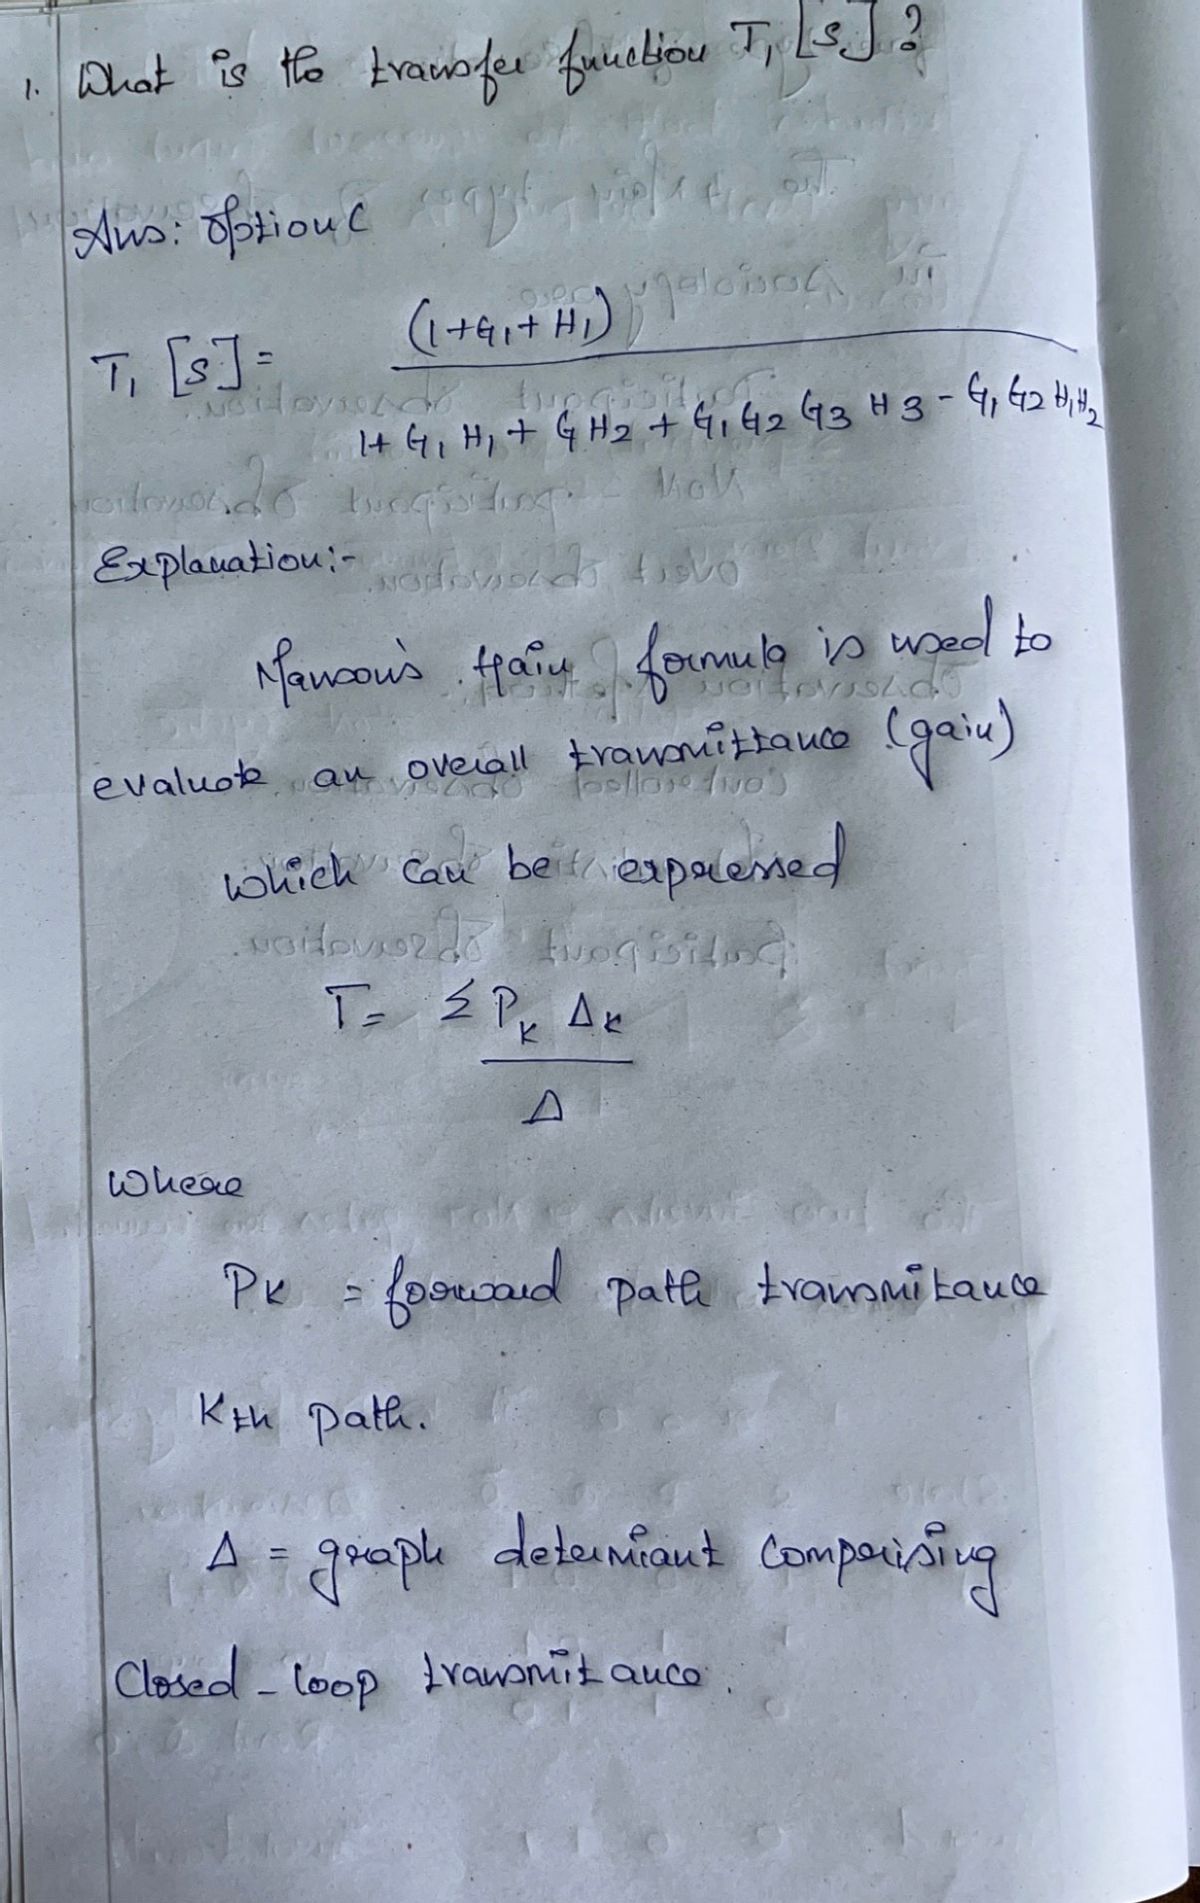 1. What is the transfer function T1 [S] ?
Ans: Option C
T1 [S] = (1+G1+H1)
1+ G1 H1 + G H2 + G1 G2 G3 H3 - G1 G2 H1 H2
Explanation:-
Manson's Gain formula is used to
evaluate an overall transmittance (gain)
which can be expressed
T = Σ PK ΔK
Δ
Where
PK = forward path transmitance
Kth path.
Δ = graph determiant comprising
Closed - loop transmitance.